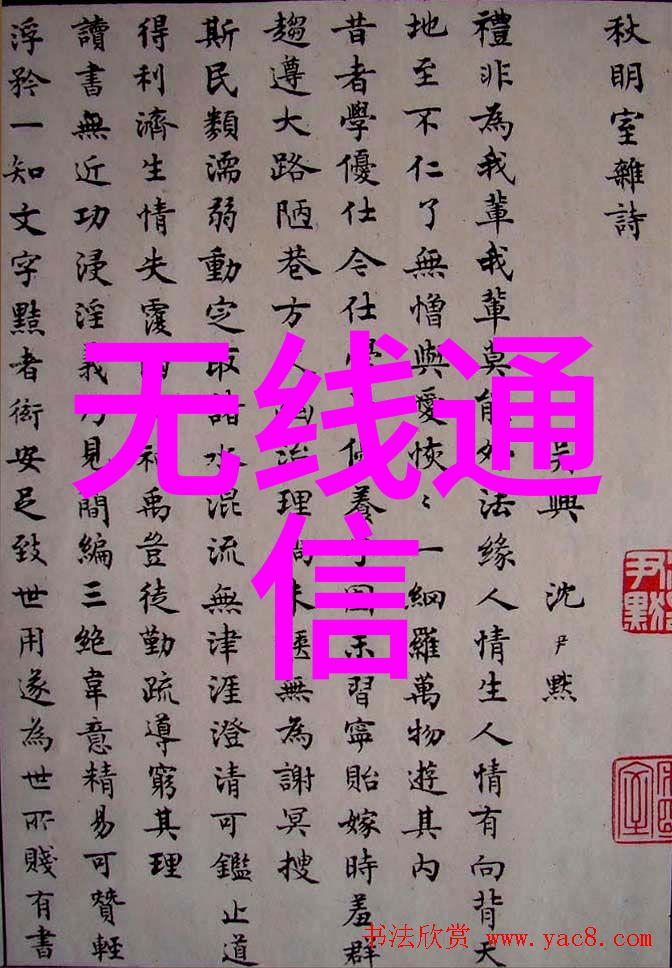 秋明室雜詩
吳興 沈尹默
禮非為我輩我輩莫能外法緣人情生人情有向背天
地至不仁了無憎與愛恢〻一網羅萬物遊其內
昔者學優仕今仕學
養子固未習寧貽嫁時羞群
趨遵大路陋巷方
治理
無為謝冥搜
斯民類濡弱動定取諸水混流無津涯澄清可鑑止道
得利濟生情失覆
神禹豈徒勤疏導窮其理
讀書無近功浸淫義乃見簡編三絕韋意精易可贊輕
浮矜一知文字黠者衒安足致世用遂為世所賤有書
无线通
信
尹默
书法欣赏 www.yac8.com